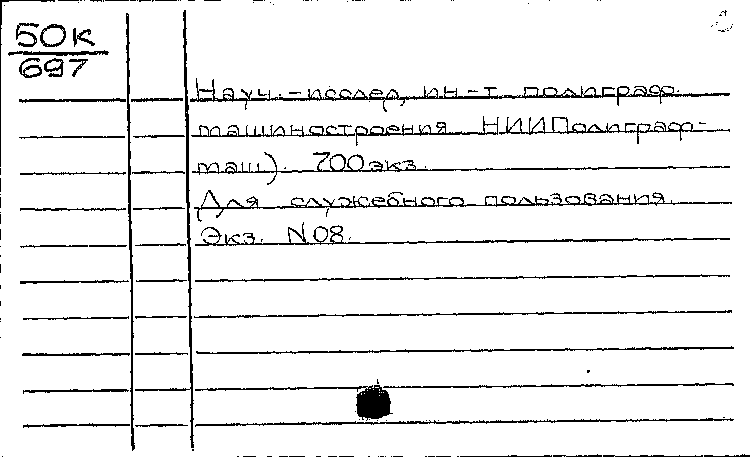 50к
697
Науч.-исслед, ин-т полиграф.
машиностроения НИИПолиграф-
маш). 700 экз.
Для служебного пользования.
Экз. N08.